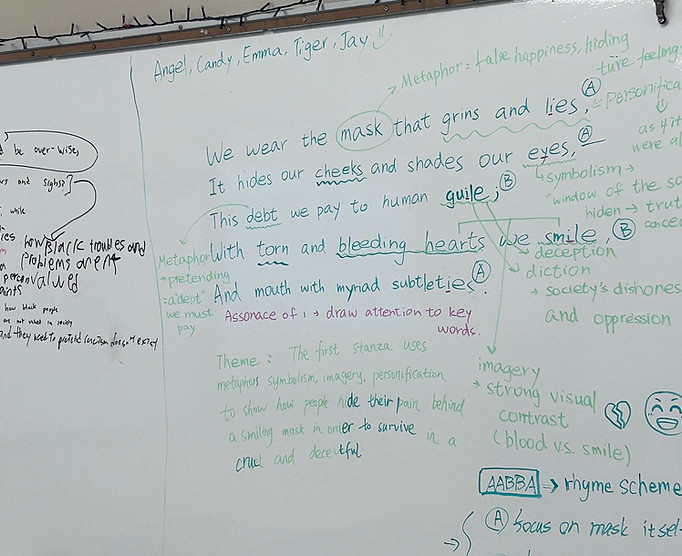 Angel, Candy, Emma, Tiger, Jay
Metaphor = false happiness, hiding
ture feelings
We wear the mask that grins and lies, A
= personifica
as if it
were al
It hides our cheeks and shades our eyes, A
symbolism →
window of the so
hiden → trut
concea
This debt we pay to human guile; B
With torn and bleeding hearts we smile, B
And mouth with myriad subtleties. A
Metaphor
→ pretending
= a "debt"
we must
pay
deception
diction
→ society's dishones
and oppression
Assonace of i → draw attention to key
words.
Theme : The first stanza uses
metaphors symbolism, imagery, personification
to show how people hide their pain behind
a smiling mask in order to survive in a
cruel and deceitful
imagery
→ strong visual
contrast
(blood vs. smile)
AABBA → rhyme scheme
A focus on mask itsel
be over-wise,
and sighs?
while
how black troubles and
problems arent
valued
how black people
are not valued in society
and they need to pretend racism doesn't exist